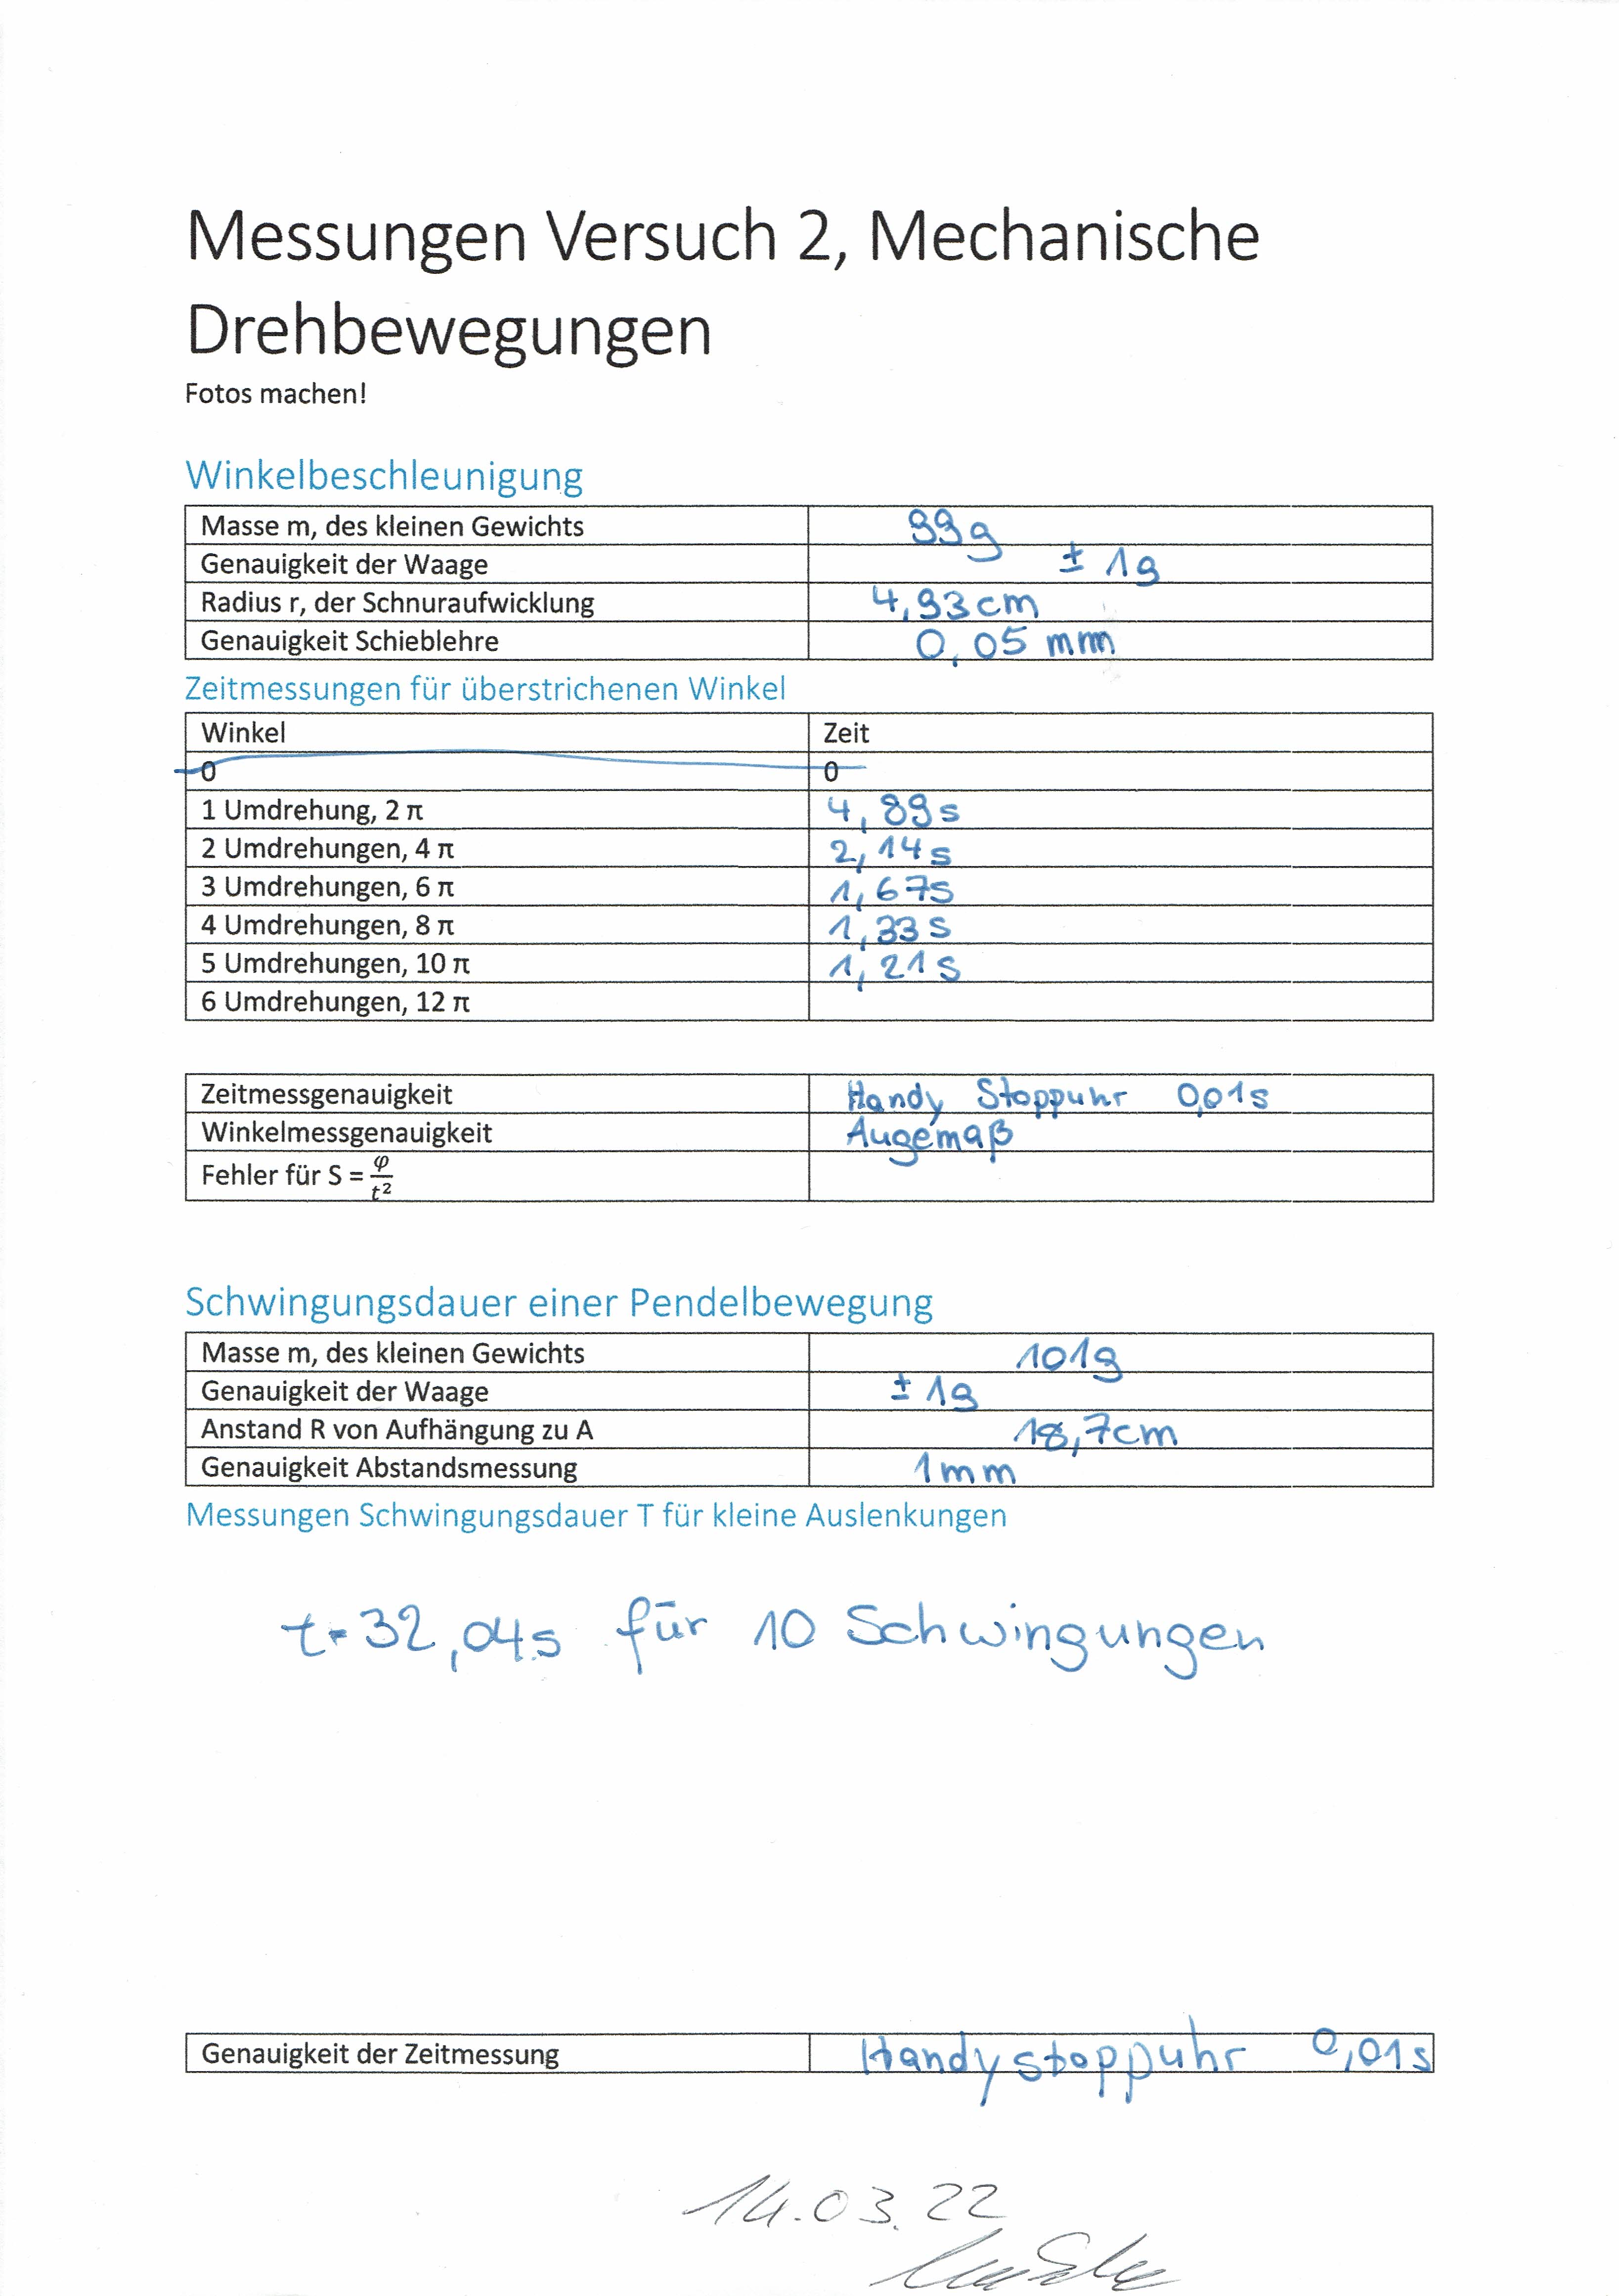 Messungen Versuch 2, Mechanische
Drehbewegungen
Fotos machen!
Winkelbeschleunigung
Masse m, des kleinen Gewichts 99g
Genauigkeit der Waage ± 1g
Radius r, der Schnuraufwicklung 4,93cm
Genauigkeit Schieblehre 0,05 mm
Zeitmessungen für überstrichenen Winkel
Winkel Zeit
0 0
1 Umdrehung, 2 π 4,89s
2 Umdrehungen, 4 π 2,14s
3 Umdrehungen, 6 π 1,67s
4 Umdrehungen, 8 π 1,33s
5 Umdrehungen, 10 π 1,21s
6 Umdrehungen, 12 π
Zeitmessgenauigkeit Handy Stoppuhr 0,01s
Winkelmessgenauigkeit Augemaß
Fehler für S = φ/t²
Schwingungsdauer einer Pendelbewegung
Masse m, des kleinen Gewichts 101g
Genauigkeit der Waage ± 1g
Anstand R von Aufhängung zu A 18,7cm
Genauigkeit Abstandsmessung 1mm
Messungen Schwingungsdauer T für kleine Auslenkungen
t=32,04s für 10 Schwingungen
Genauigkeit der Zeitmessung Handystoppuhr 0,01s
14.03.22